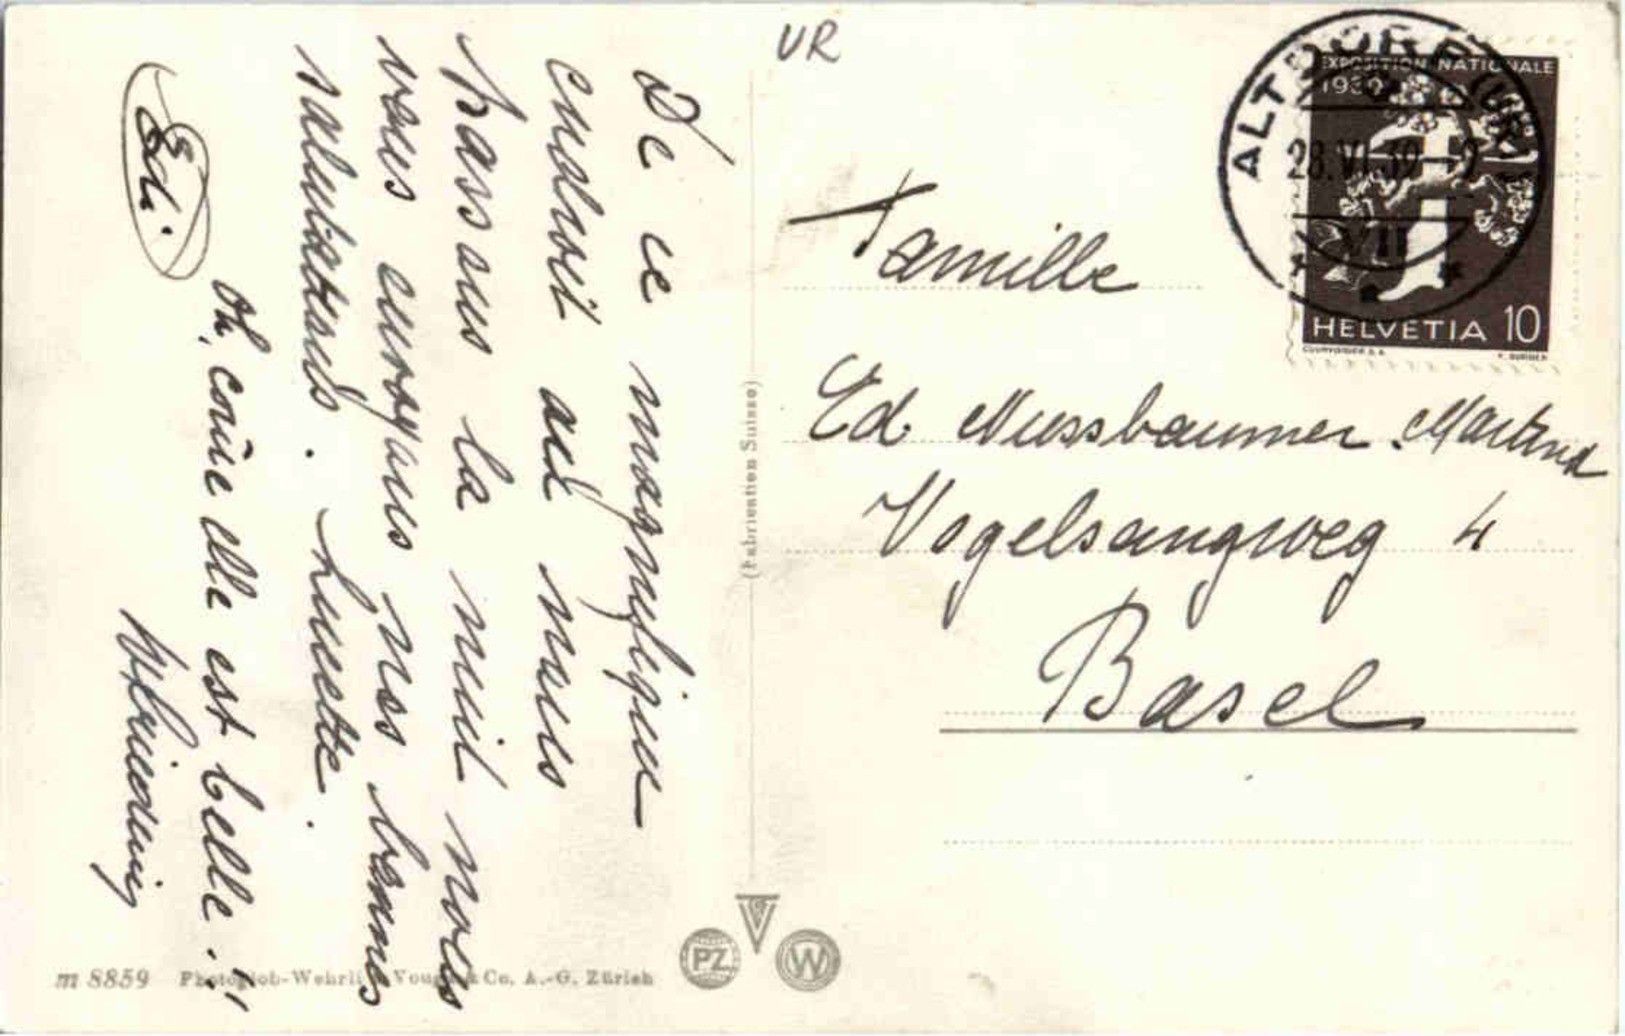 De ce magnifique
endroit où nous
passons la nuit nous
vous envoyons nos bonnes
salutations. Lucette.
Oh, coûe elle est belle!!
Edi.
UR
Famille
Ed. Nussbaumer Martina
Vogelsangweg 4
Basel
(Fabrication Suisse)
EXPOSITION NATIONALE
1939
HELVETIA 10
COURVOISIER S.A.
ALTDORF (UR)
28.VI.39-
VII
PZ
W
m 8859 Photoglob-Wehrli & Vouga & Co. A.-G. Zürich